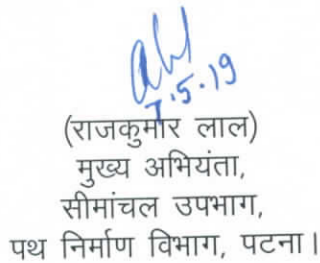 7.5.19
(राजकुमार लाल)
मुख्य अभियंता,
सीमांचल उपभाग,
पथ निर्माण विभाग, पटना।